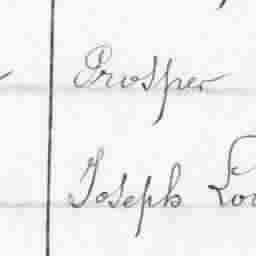 Prosper
Joseph Lou